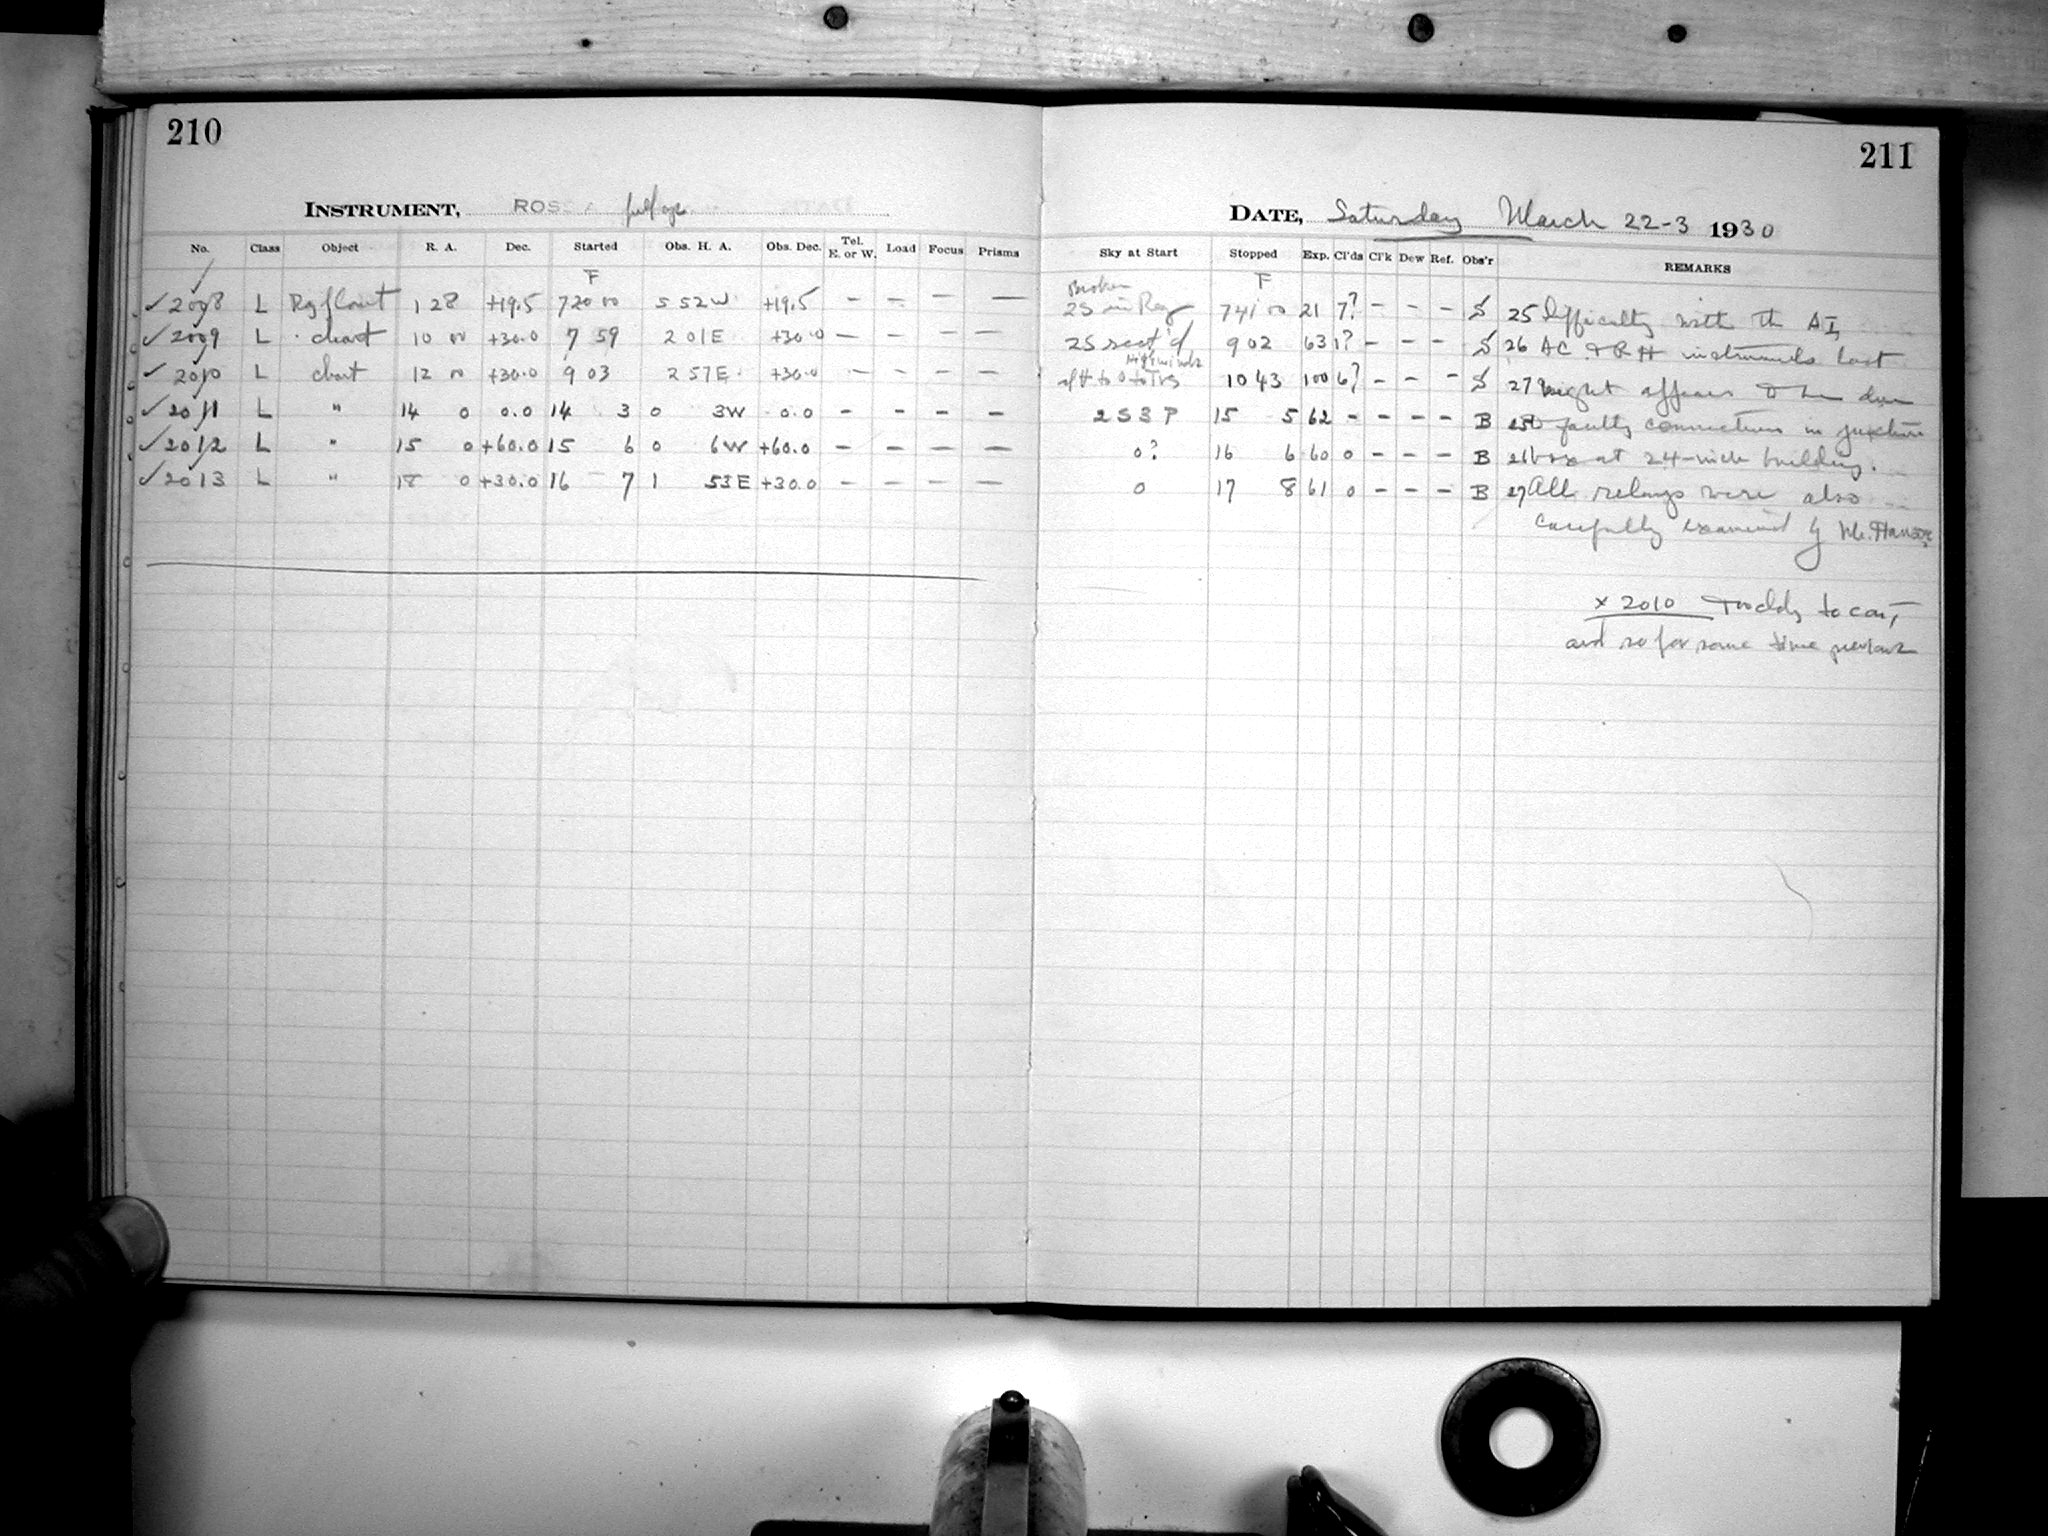 210
211
INSTRUMENT, ROSS A
DATE, Saturday March 22-3 1930
No. Class Object R. A. Dec. Started Obs. H. A. Obs. Dec. Tel. E. or W. Load Focus Prisms Sky at Start Stopped Exp. Cl'ds Cl'k Dew Ref. Obs'r REMARKS
F Broken F
✓ 2008 L 1 28 +19.5 7 20 00 5 52W +19.5 — — — — 2S in 7 41 00 21 7? – – – S 25 Difficulty with the A I,
✓ 2009 L chart 10 00 +30.0 7 59 2 01E +30.0 — — — — 2S 9 02 63 1? – – – S 26 AC & RH instruments last
High winds
✓ 2010 L chart 12 00 +30.0 9 03 2 57E +30.0 — — — — 10 43 100 6? – – – S 27 night appears to be due
✓ 2011 L " 14 0 0.0 14 3 0 3W 0.0 – – – – 2 S 3 P 15 5 62 – – – – B 25 to faulty connections in juncture
✓ 2012 L " 15 0 +60.0 15 6 0 6W +60.0 – – – – 0? 16 6 60 0 – – – B 26 box at 24-inch building.
✓ 2013 L " 18 0 +30.0 16 7 1 53E +30.0 – – – – 0 17 8 61 0 – – – B 27 All relays were also
carefully examined by Mr. Hanson
x 2010 Cloudy to cont,
and so for some time previous